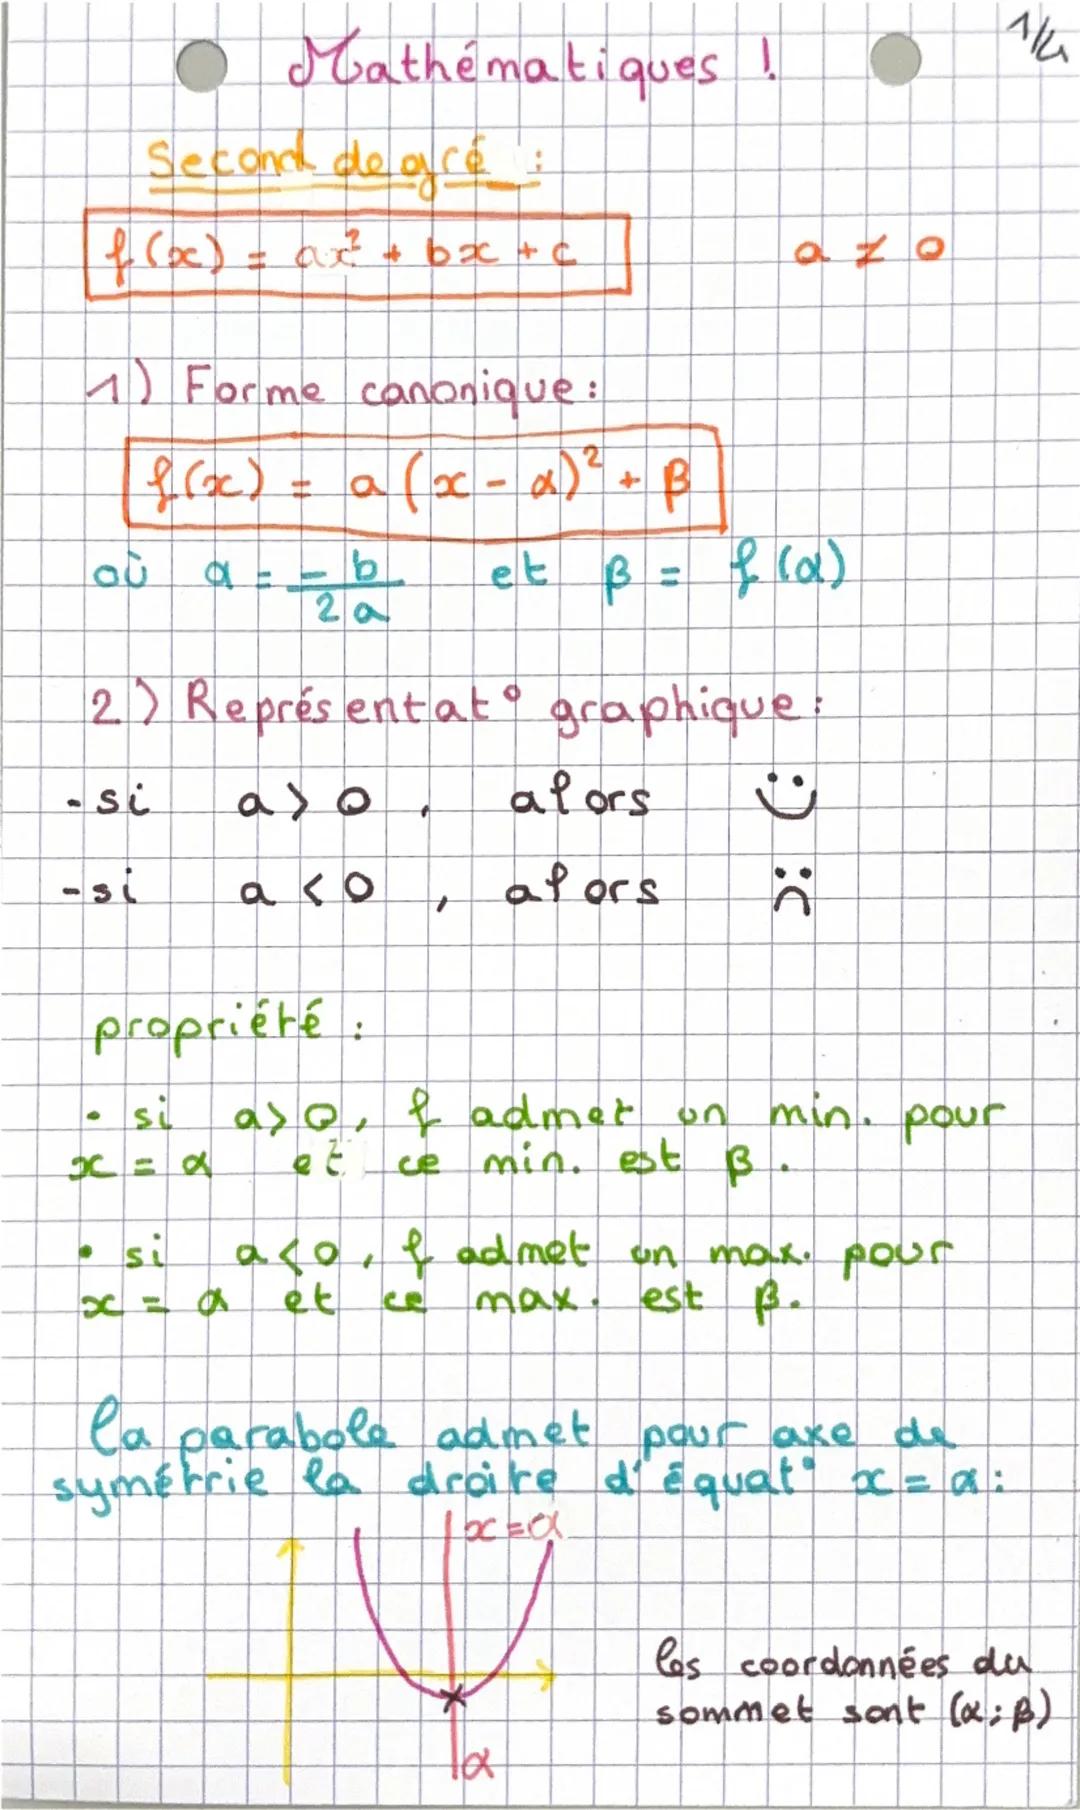 1/4
Mathématiques !
Second degré :
f(x) = ax² + bx + c a ≠ 0
1) Forme canonique :
f(x) = a(x - α)² + β
où α = -b/2a et β = f(α)
2) Représentat° graphique :
- si a > 0 , alors :)
- si a < 0 , alors :(
propriété :
• si a > 0, f admet un min. pour
x = α et ce min. est β .
• si a < 0, f admet un max. pour
x = α et ce max. est β.
la parabole admet pour axe de
symétrie la droite d'équat° x = α :
x = α
les coordonnées du
sommet sont (α ; β)
α